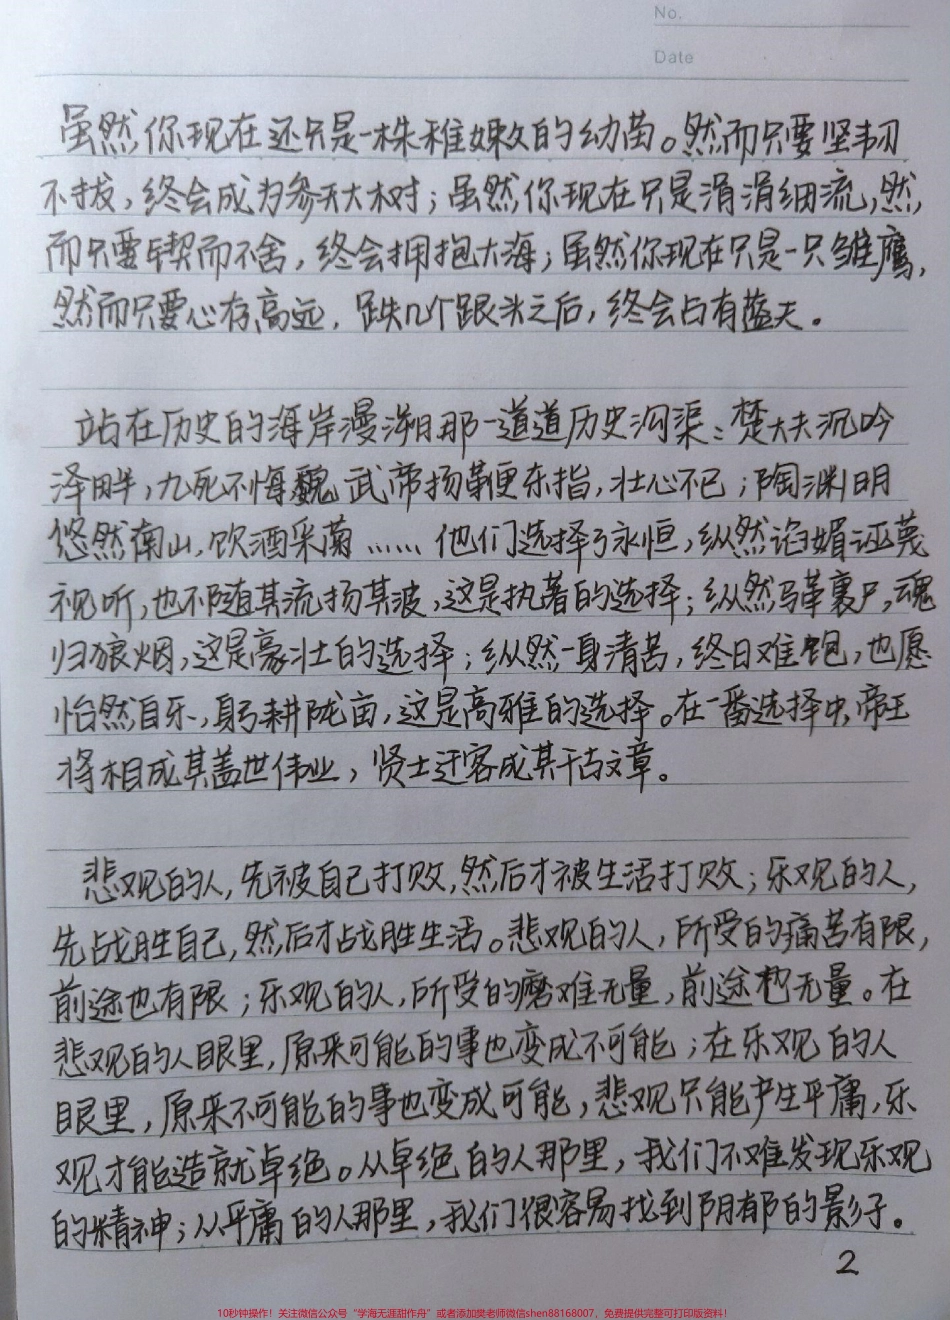 No.
Date
虽然你现在还只是一株稚嫩的幼苗。然而只要坚韧
不拔，终会成为参天大树；虽然你现在只是涓涓细流，然
而只要锲而不舍，终会拥抱大海；虽然你现在只是一只雏鹰，
然而只要心存高远，跌几个跟头之后，终会占有蓝天。
站在历史的海岸漫溯那一道道历史沟渠：楚大夫沉吟
泽畔，九死不悔魏武帝扬鞭东指，壮心不已；陶渊明
悠然南山，饮酒采菊……他们选择了永恒，纵然谄媚诬蔑
视听，也不随其流扬其波，这是执著的选择；纵然马革裹尸，魂
归狼烟，这是豪壮的选择；纵然一身清苦，终日难饱，也愿
怡然自乐，躬耕陇亩，这是高雅的选择。在一番选择中，帝王
将相成其盖世伟业，贤士迁客成其千古文章。
悲观的人，先被自己打败，然后才被生活打败；乐观的人，
先战胜自己，然后才战胜生活。悲观的人，所受的痛苦有限，
前途也有限；乐观的人，所受的磨难无量，前途也无量。在
悲观的人眼里，原来可能的事也变成不可能；在乐观的人
眼里，原来不可能的事也变成可能，悲观只能产生平庸，乐
观才能造就卓绝。从卓绝的人那里，我们不难发现乐观
的精神；从平庸的人那里，我们很容易找到阴郁的影子。
2
10秒钟操作！关注微信公众号“学海无涯甜作舟”或者添加樊老师微信shen88168007，免费提供完整可打印版资料！